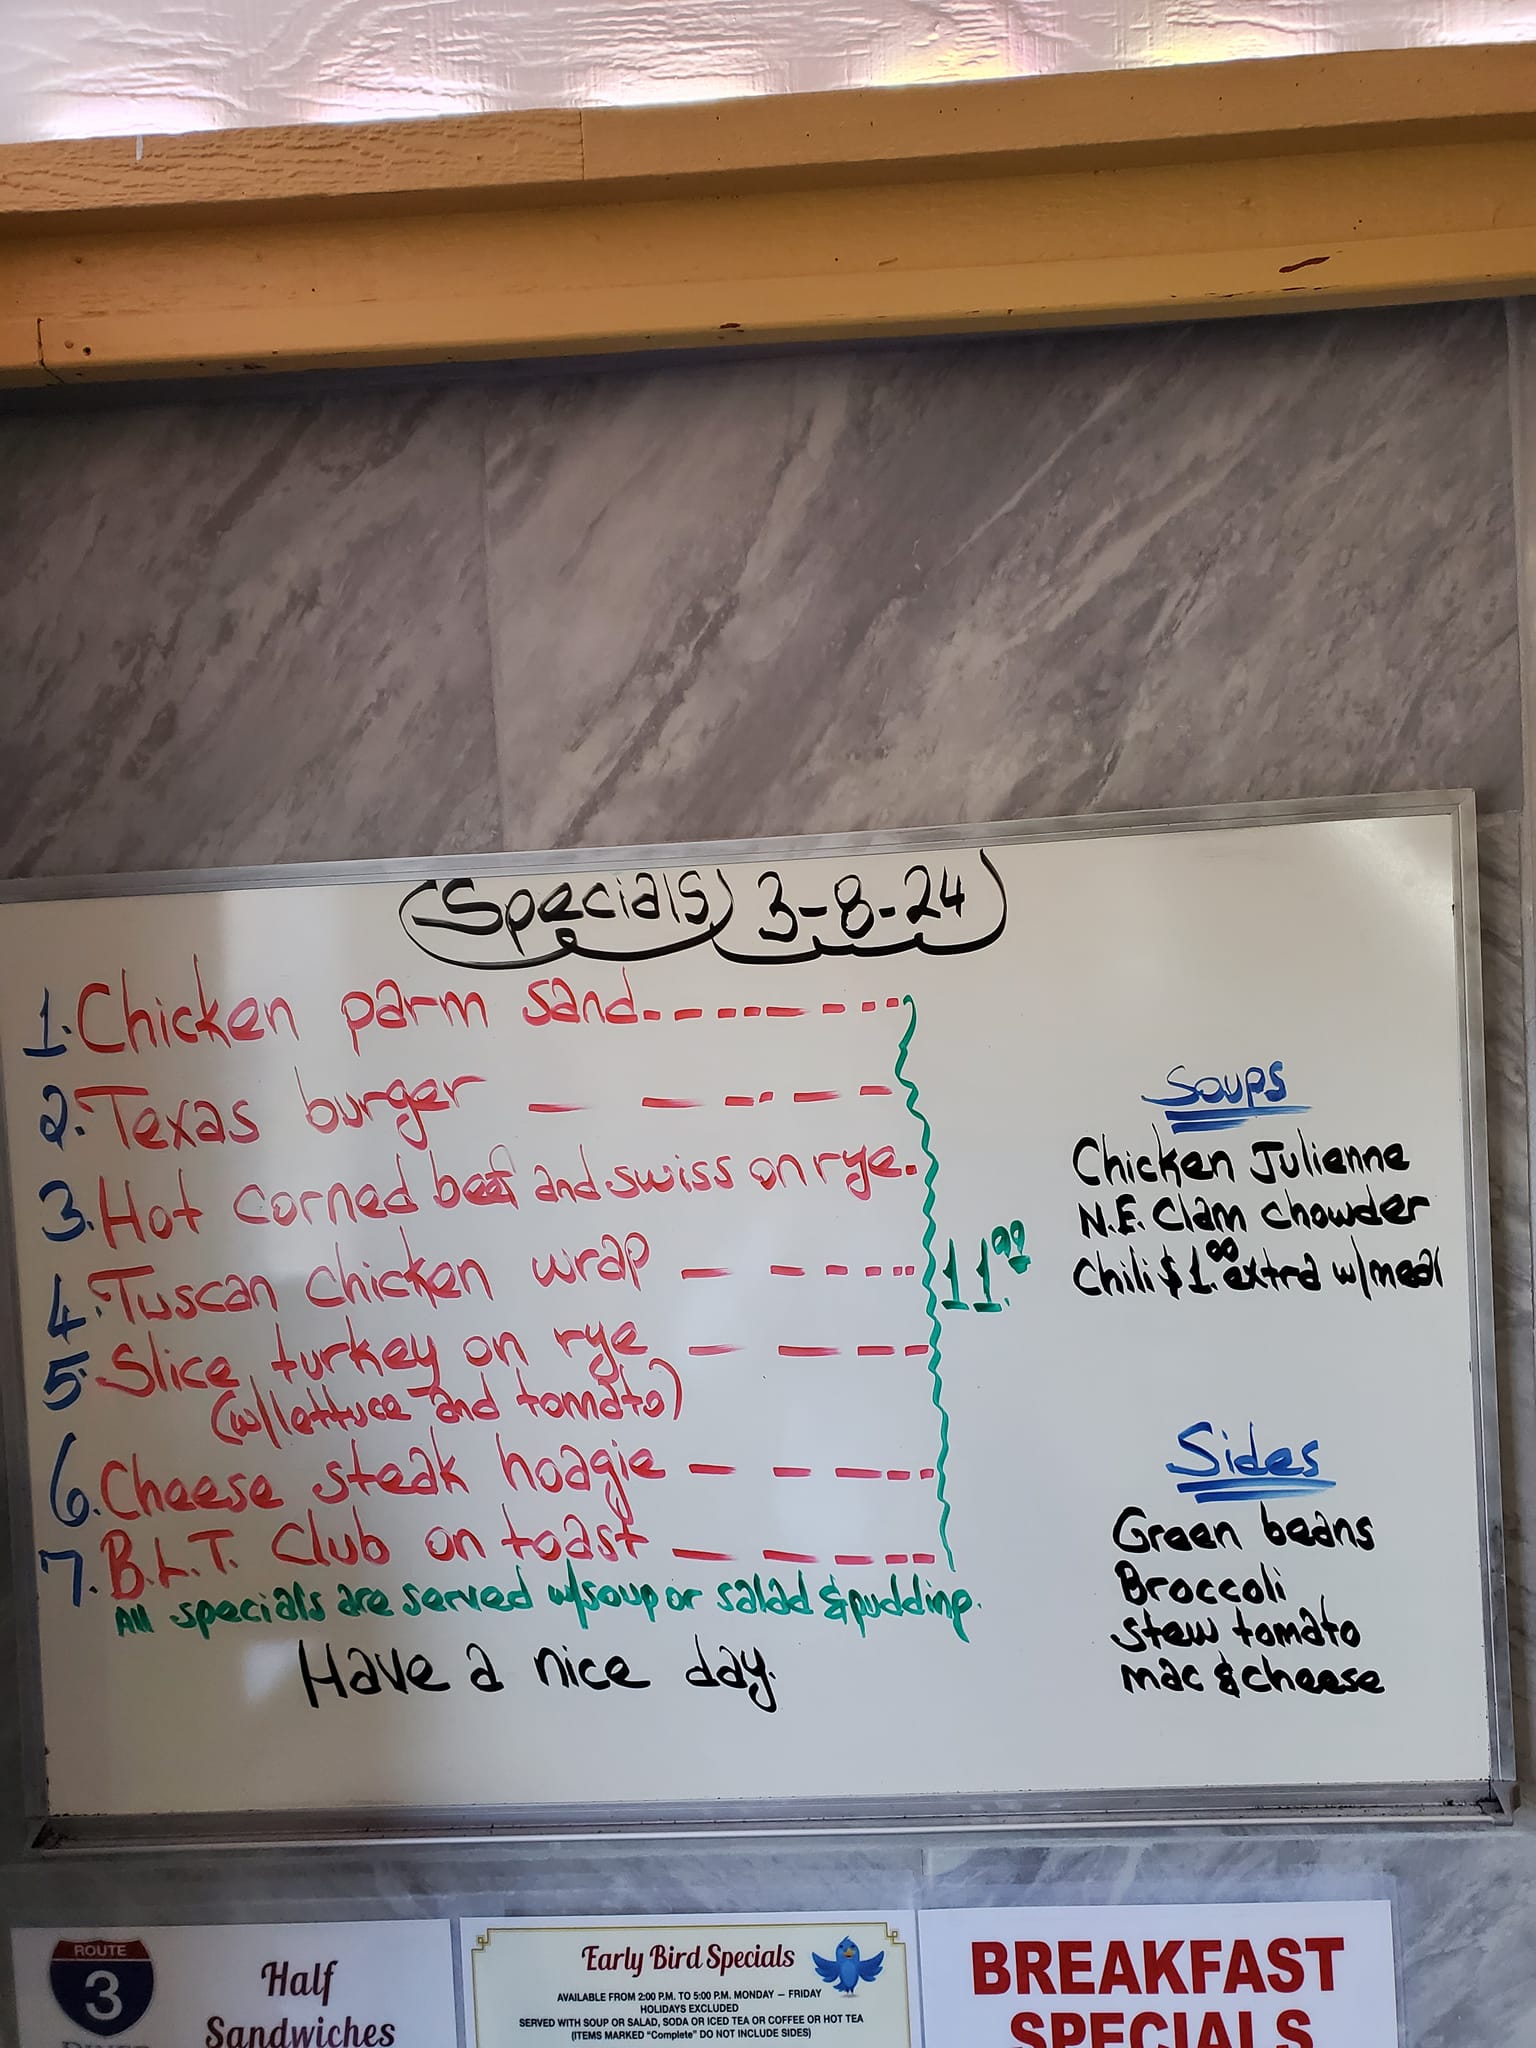 Specials 3-8-24
1. Chicken parm sand.
2. Texas burger
3. Hot corned beef and swiss on rye.
4. Tuscan chicken wrap
5. Slice turkey on rye
(w/lettuce and tomato)
6. Cheese steak hoagie
7. B.L.T. Club on toast
11.99
All specials are served w/soup or salad & pudding.
Have a nice day.
Soups
Chicken Julienne
N.E. Clam chowder
Chili $1.00 extra w/meal
Sides
Green beans
Broccoli
stew tomato
mac & cheese
ROUTE
3
DINER
Half
Sandwiches
Early Bird Specials
AVAILABLE FROM 2:00 P.M. TO 5:00 P.M. MONDAY – FRIDAY
HOLIDAYS EXCLUDED
SERVED WITH SOUP OR SALAD, SODA OR ICED TEA OR COFFEE OR HOT TEA
(ITEMS MARKED "Complete" DO NOT INCLUDE SIDES)
BREAKFAST
SPECIALS